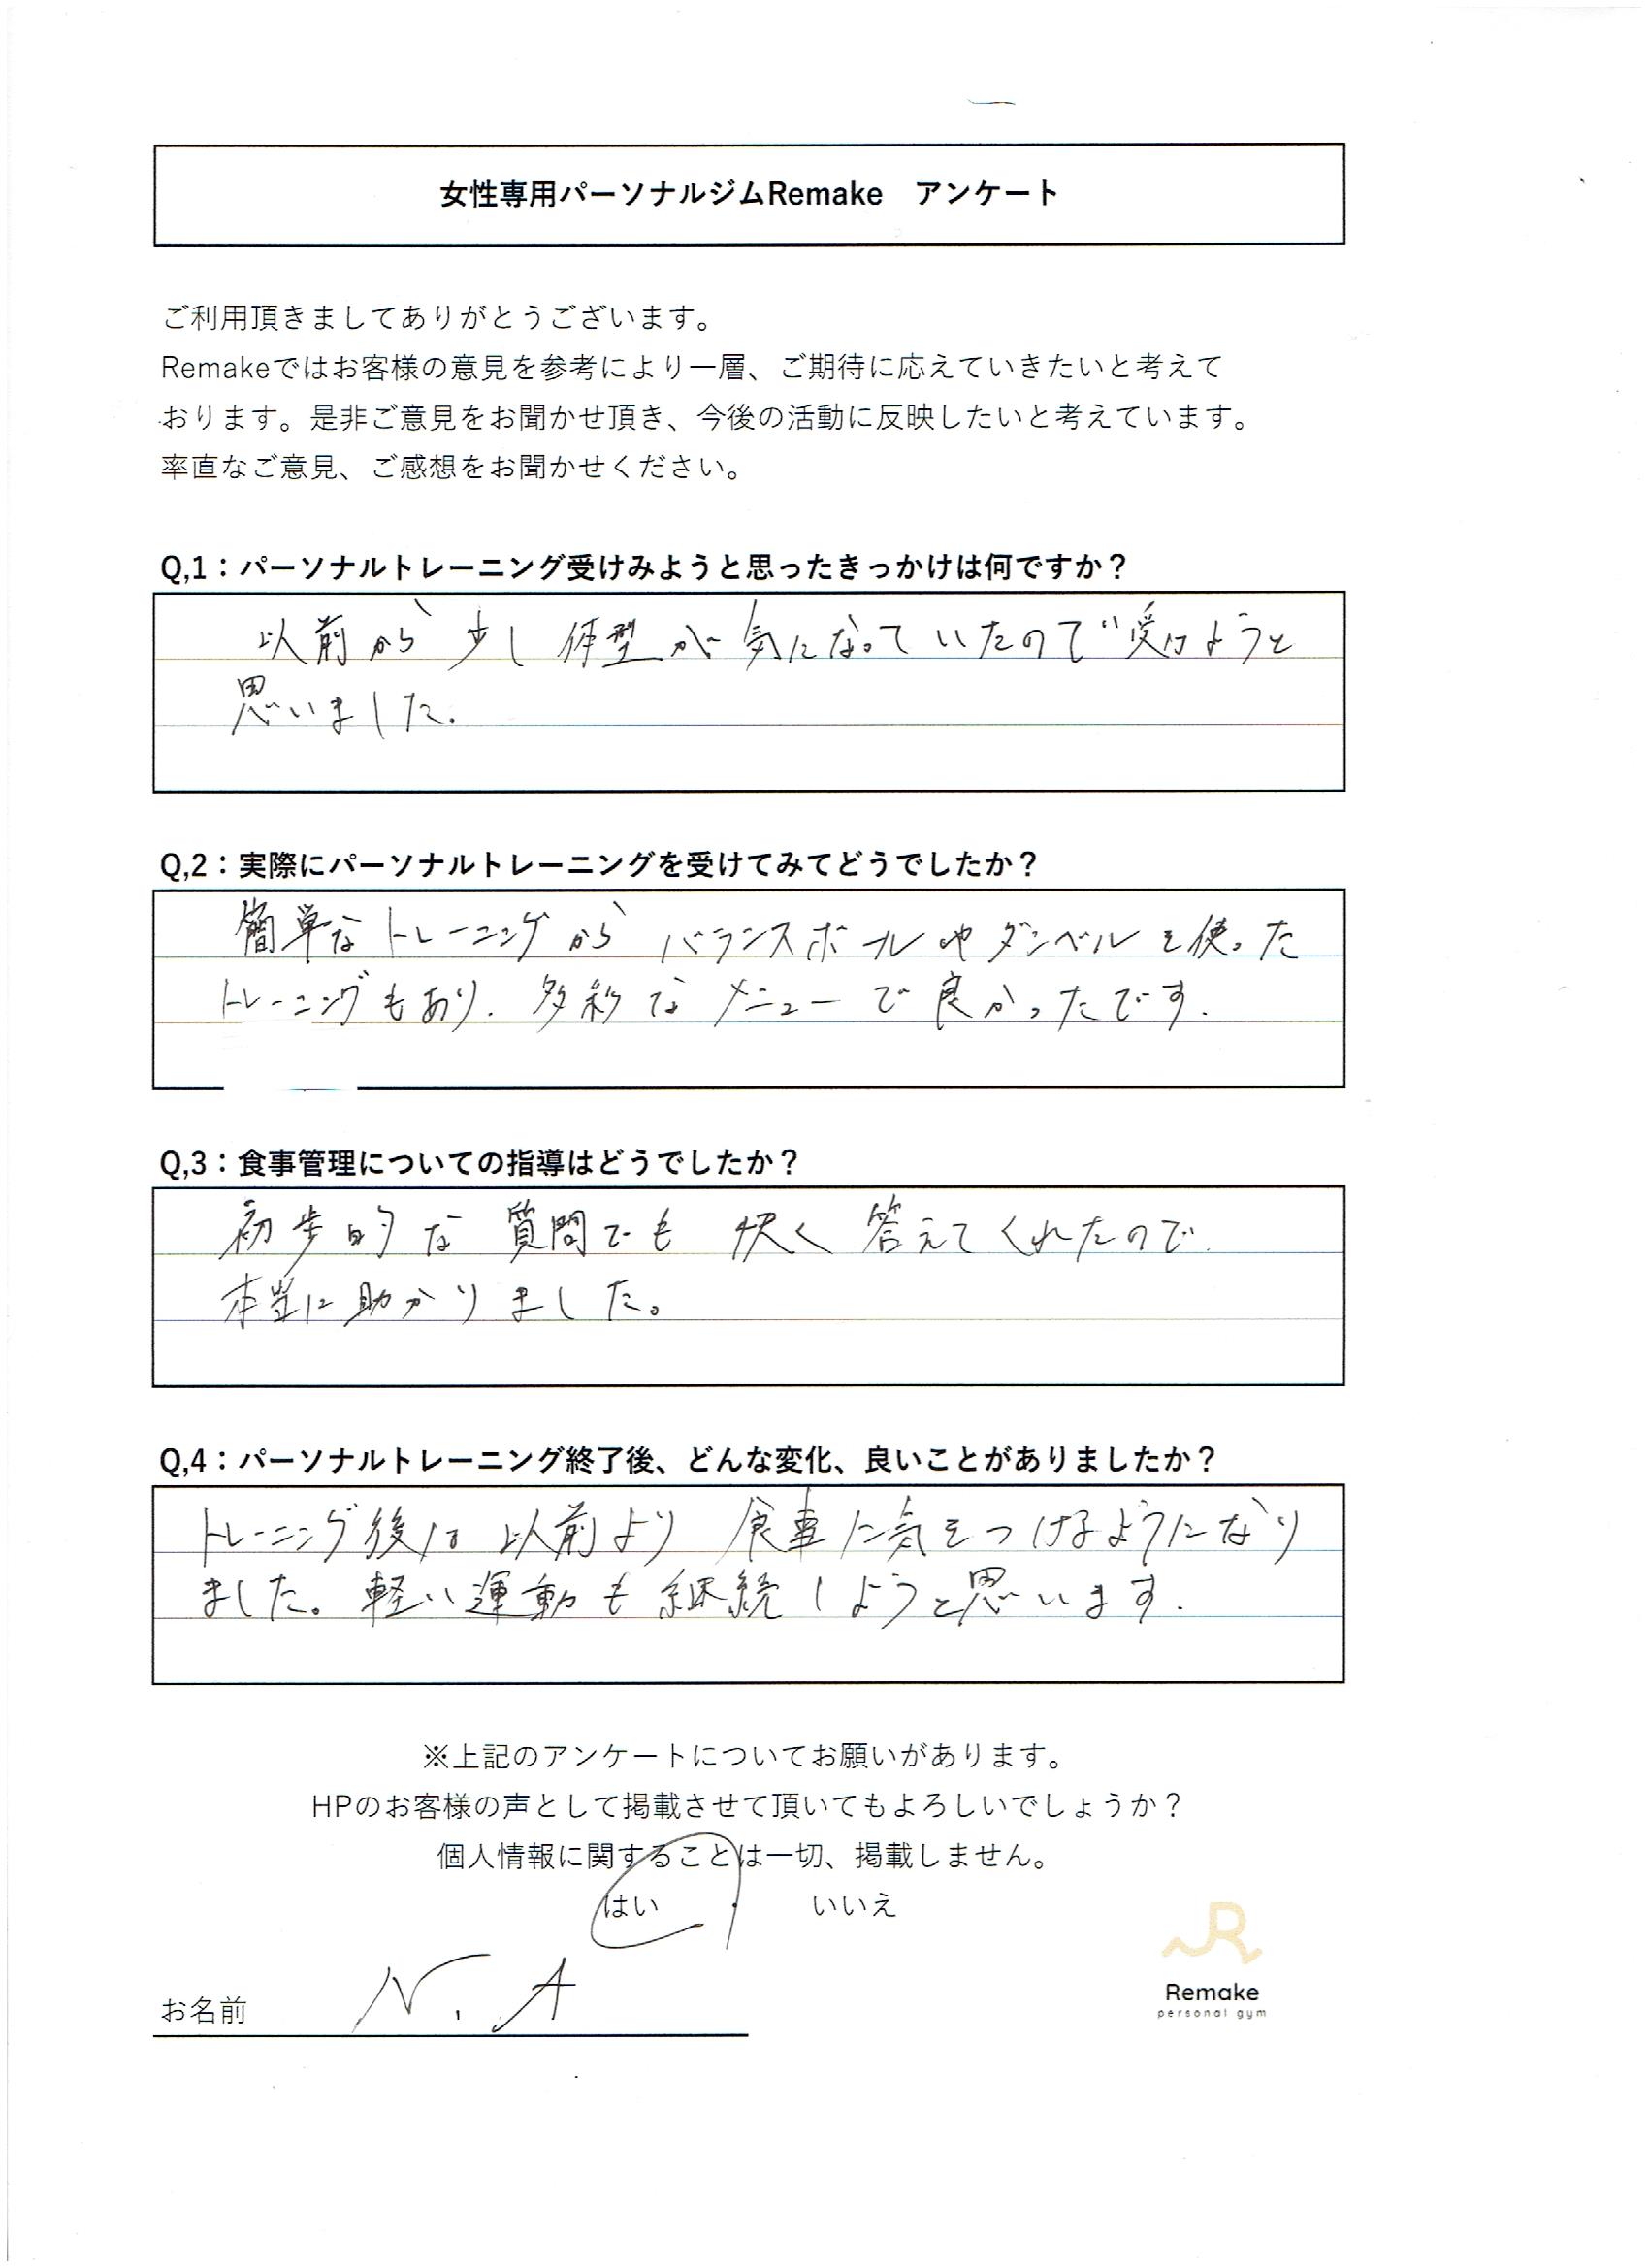 女性専用パーソナルジムRemake　アンケート
ご利用頂きましてありがとうございます。
Remakeではお客様の意見を参考により一層、ご期待に応えていきたいと考えて
おります。是非ご意見をお聞かせ頂き、今後の活動に反映したいと考えています。
率直なご意見、ご感想をお聞かせください。
Q,1：パーソナルトレーニング受けみようと思ったきっかけは何ですか？
以前から少し体型が気になっていたので受けようと
思いました.
Q,2：実際にパーソナルトレーニングを受けてみてどうでしたか？
簡単なトレーニングからバランスボールやダンベルを使った
トレーニングもあり. 多彩なメニューで良かったです.
Q,3：食事管理についての指導はどうでしたか？
初歩的な質問でも快く答えてくれたので
本当に助かりました。
Q,4：パーソナルトレーニング終了後、どんな変化、良いことがありましたか？
トレーニング後は以前より食事に気をつけるようになり
ました。軽い運動も継続しようと思います.
※上記のアンケートについてお願いがあります。
HPのお客様の声として掲載させて頂いてもよろしいでしょうか？
個人情報に関することは一切、掲載しません。
はい　・　いいえ
お名前　N. A
Remake
personal gym